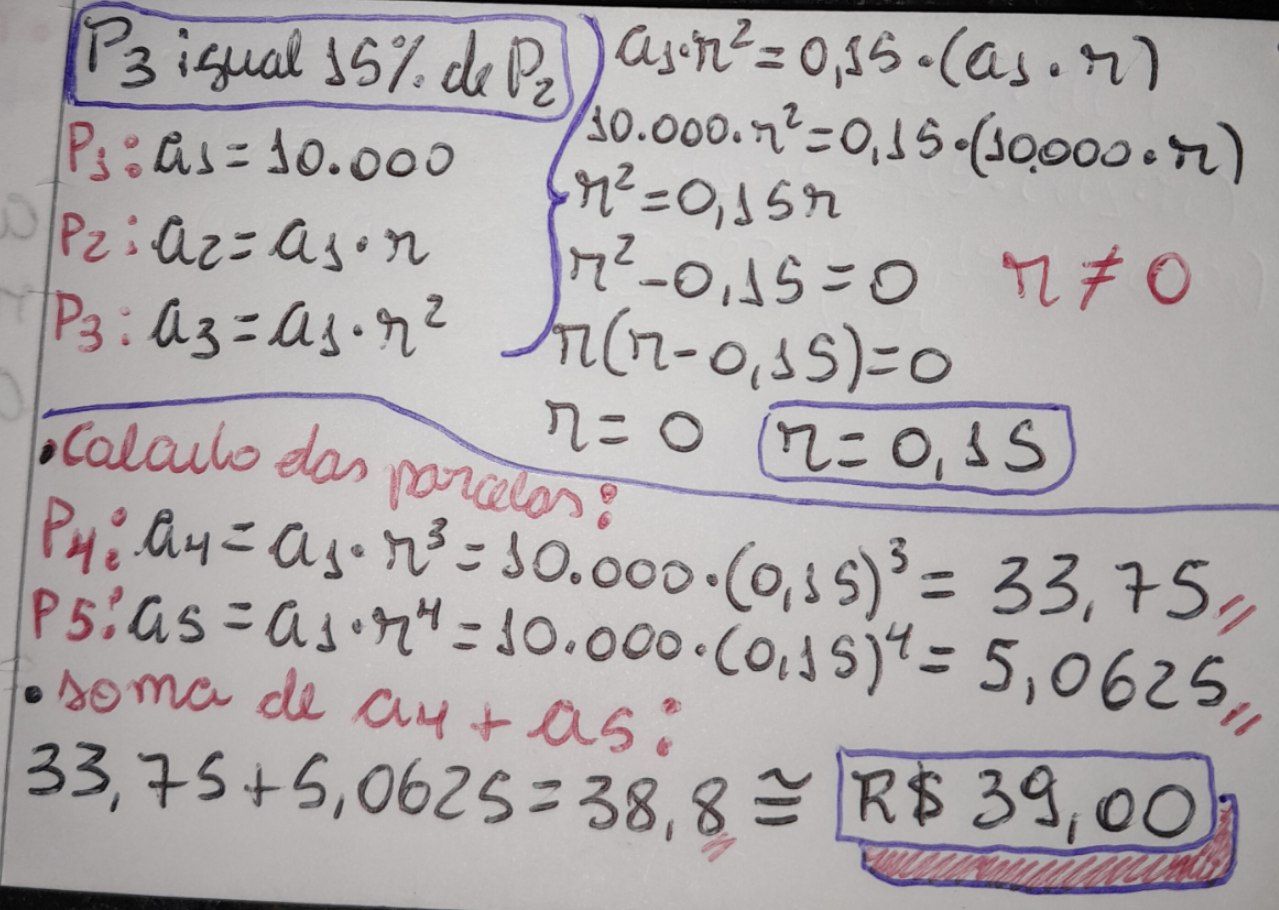 P₃ igual 15% de P₂
P₁: a₁ = 10.000
P₂: a₂ = a₁ · r
P₃: a₃ = a₁ · r²
a₁·r² = 0,15 · (a₁ · r)
10.000 · r² = 0,15 · (10.000 · r)
r² = 0,15r
r² - 0,15 = 0 r ≠ 0
r(r - 0,15) = 0
r = 0 r = 0,15
• Calculo das parcelas:
P₄: a₄ = a₁ · r³ = 10.000 · (0,15)³ = 33,75
P5: a₅ = a₁ · r⁴ = 10.000 · (0,15)⁴ = 5,0625
• soma de a₄ + a₅:
33,75 + 5,0625 = 38,8 ≅ R$ 39,00